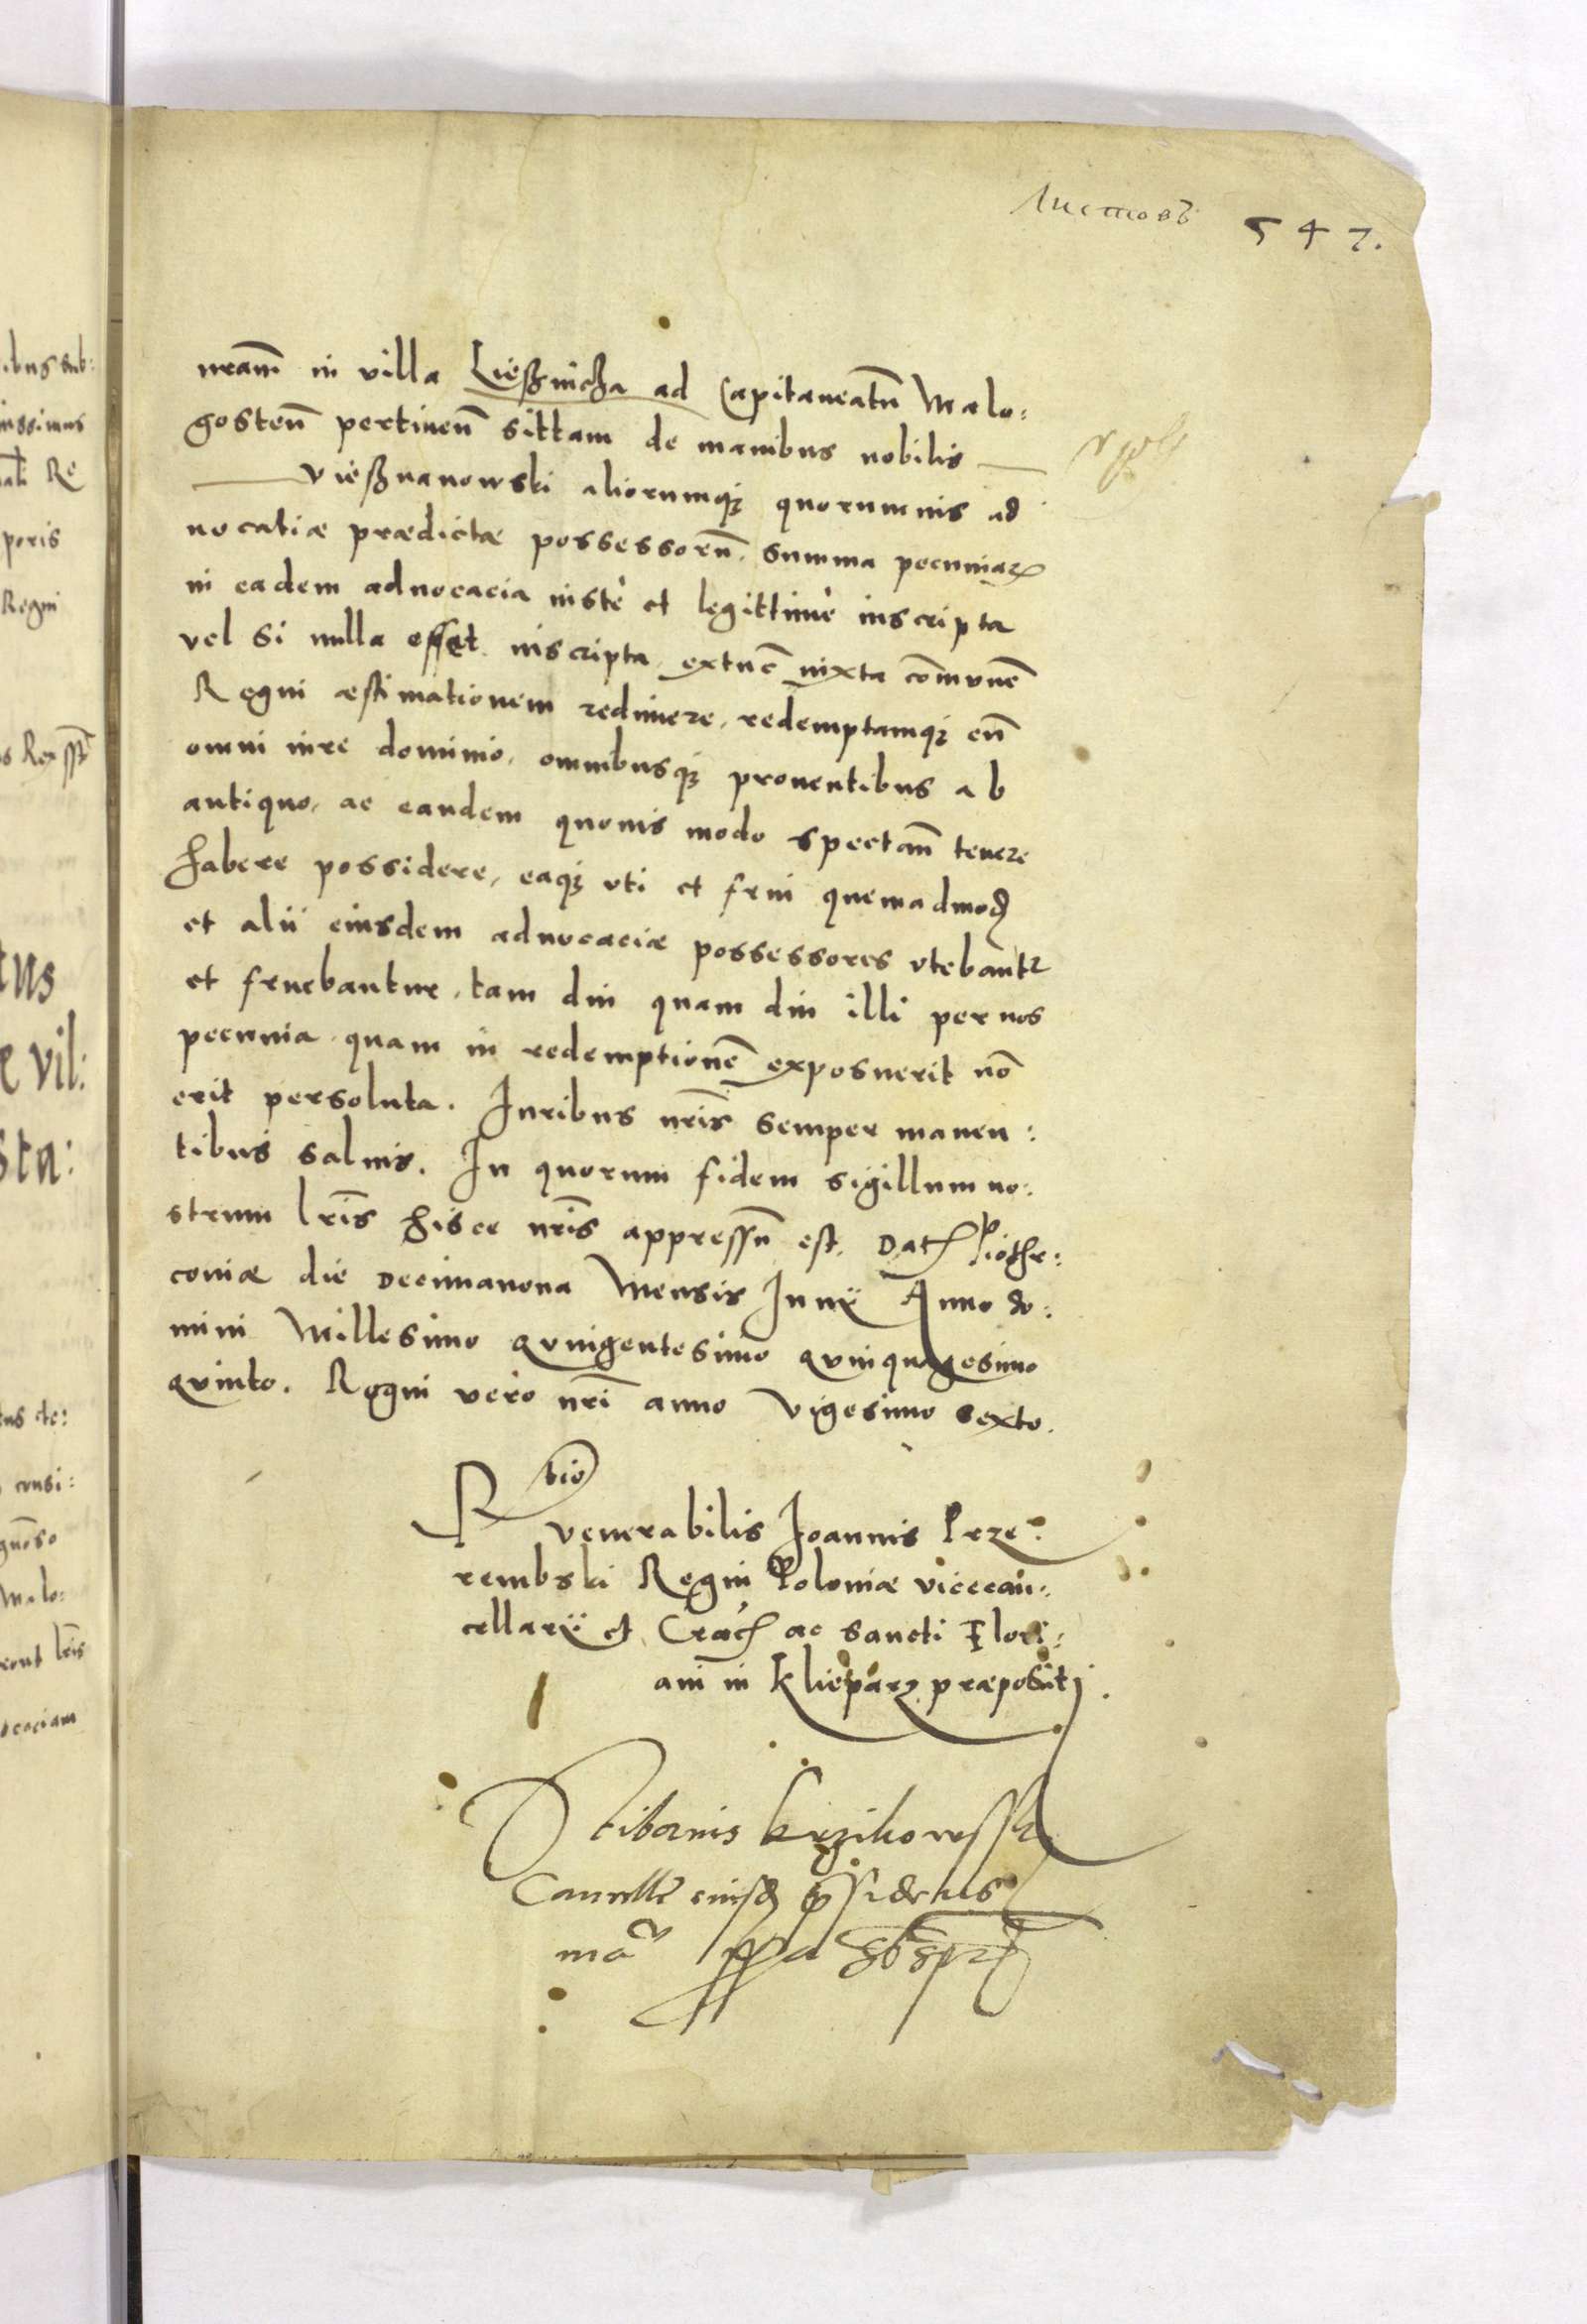 Листовъ 547.
nram̄ in villa Liesznicza ad Capitaneatū Malo:
gosten̄ pertinen̄ sittam de manibus nobilis
Viesznanowski aliorumq₃ quorumuis ad
uocatiæ prædictæ possessorū. summa pecuniaꝝ
in eadem aduocacia iuste et legittime inscripta
vel si nulla esset inscripta, extunc̄ iuxta com̄unē
Regni æstimationem redimere, redemptamq₃ cū
omni iure dominio, omnibusq₃ prouentibus ab
antiquo, ac eandem quouis modo spectan̄ tenere
habere possidere, eaq₃ vti et frui quemadmod
et alii eiusdem aduocaciæ possessores vtebantr
et fruebantur, tam diu quam diu illi per nos
pecunia quam in redemptionē exposuerit nō
erit persoluta. Iuribus nris̄ semper manen:
tibus saluis. In quorum fidem sigillum no:
strum lris̄ hisce nris̄ appressū est. Dat Piothr:
coniæ die Decimanona Mensis Iunii Anno do:
mini Millesimo quingentesimo quinquagesimo
quinto. Regni vero nri̅ anno vigesimo sexto.
Rtio
venerabilis Ioannis Prze:
rembski Regni Poloniæ vicecan:
cellarii et Crac ac sancti Flori:
ani in Klieparz præpositi.